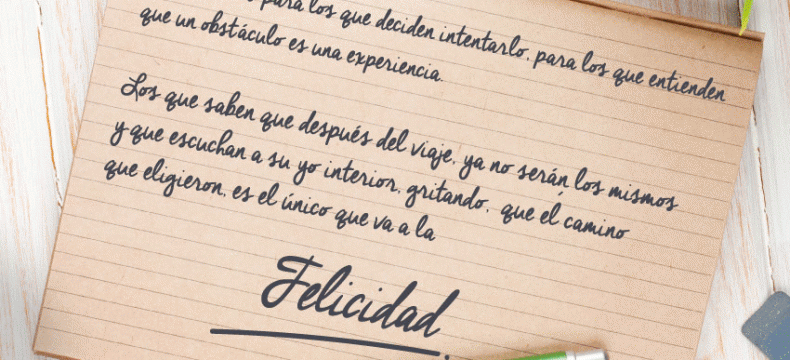 para los que deciden intentarlo, para los que entienden
que un obstáculo es una experiencia.
Los que saben que después del viaje, ya no serán los mismos
y que escuchan a su yo interior, gritando, que él camino
que eligieron, es el único que va a la
Felicidad.